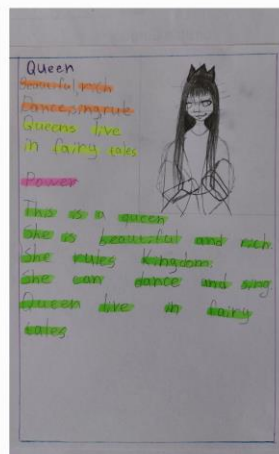 Queen
Beautiful, rich
Dance, sing, rule
Queens live
in fairy tales
Power
This is a queen
She is beautiful and rich
She rules Kingdom.
She can dance and sing
Queen live in fairy
tales